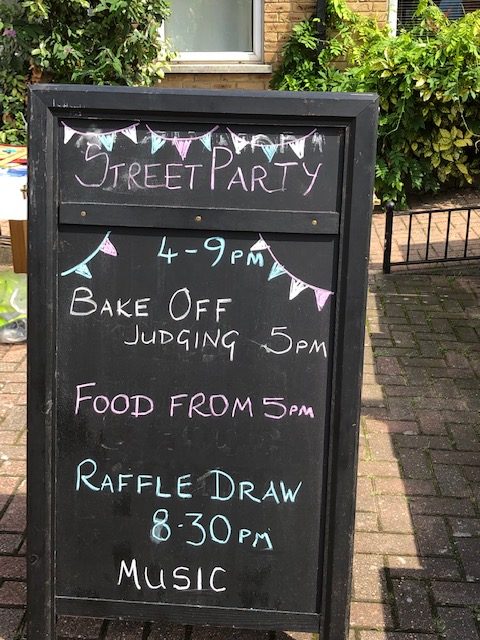 STREET PARTY
4-9PM
BAKE OFF
JUDGING 5PM
FOOD FROM 5PM
RAFFLE DRAW
8-30PM
MUSIC